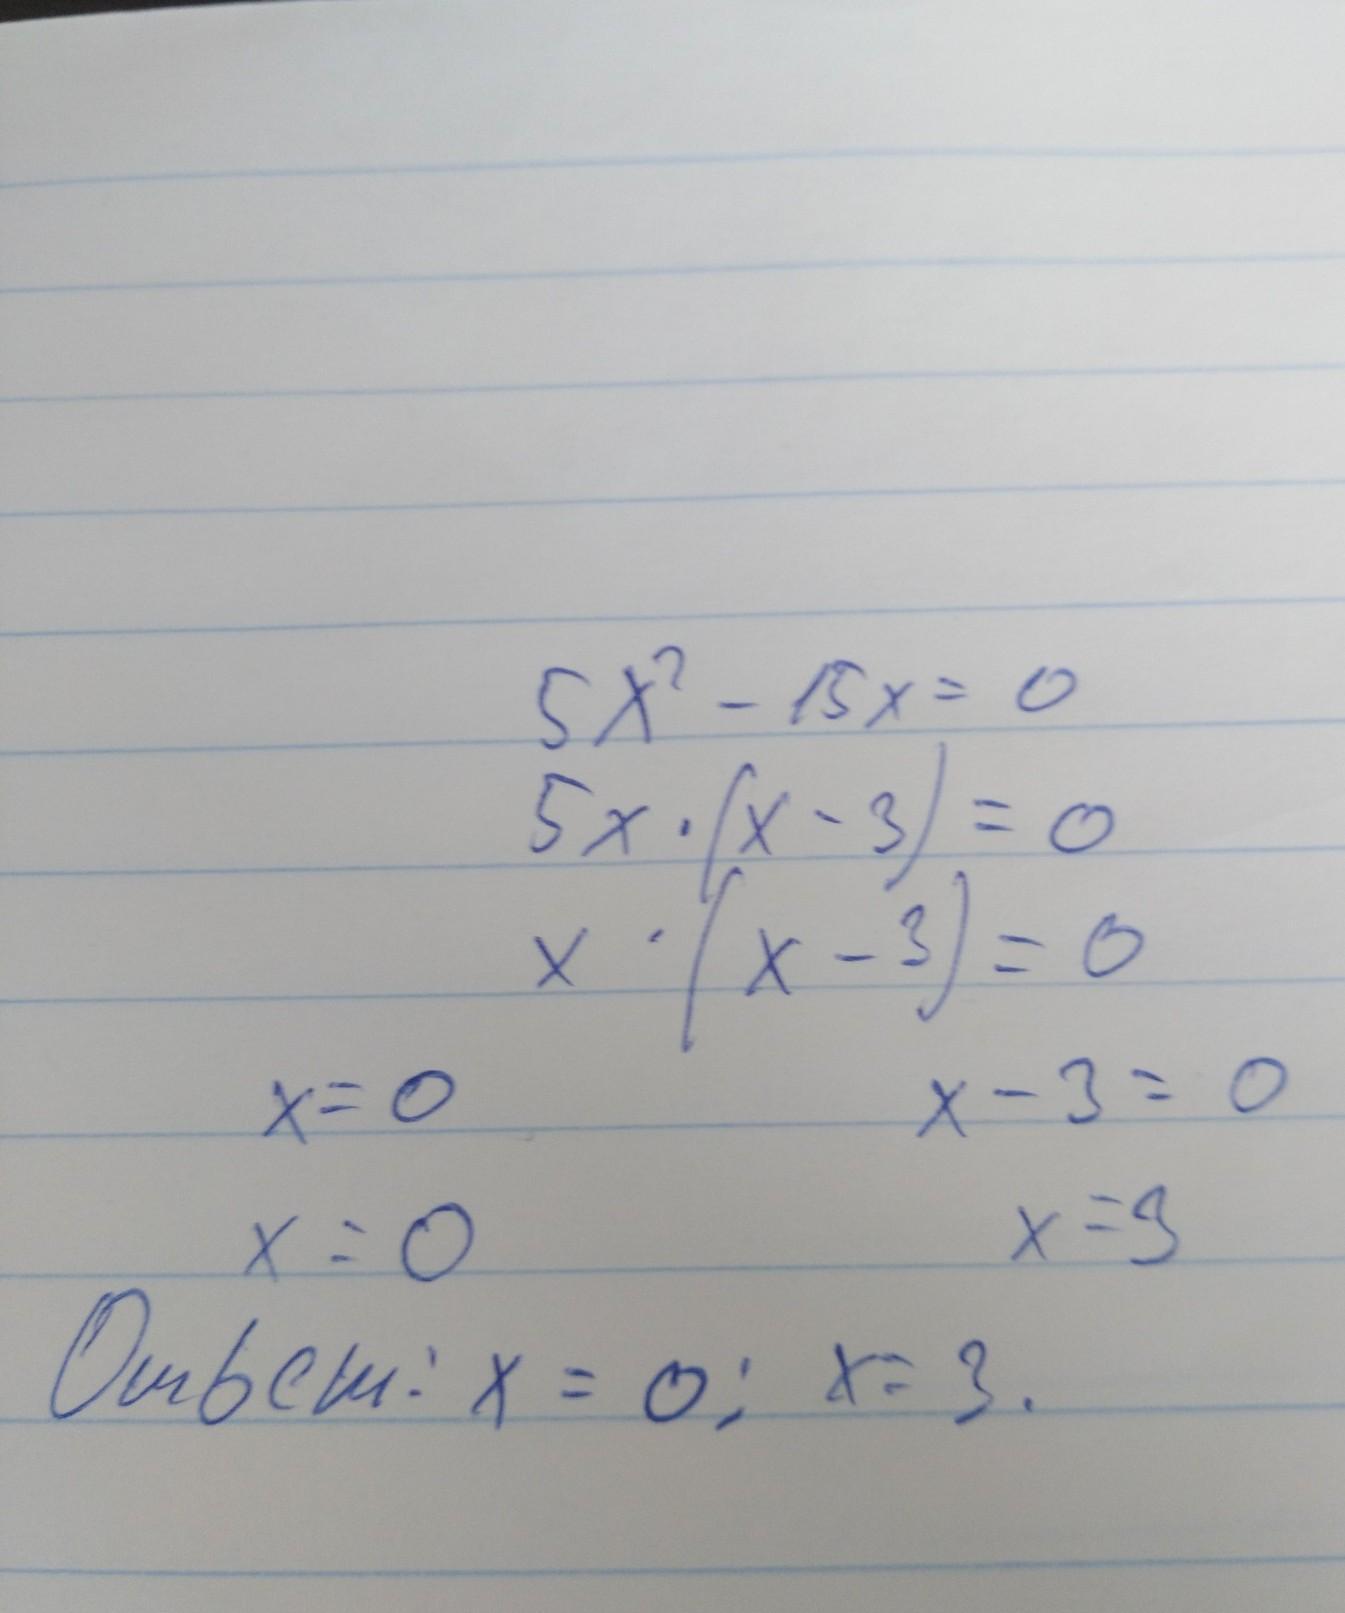 5x² - 15x = 0
5x · (x - 3) = 0
x · (x - 3) = 0
x = 0 x - 3 = 0
x = 0 x = 3
Ответ: x = 0; x = 3.